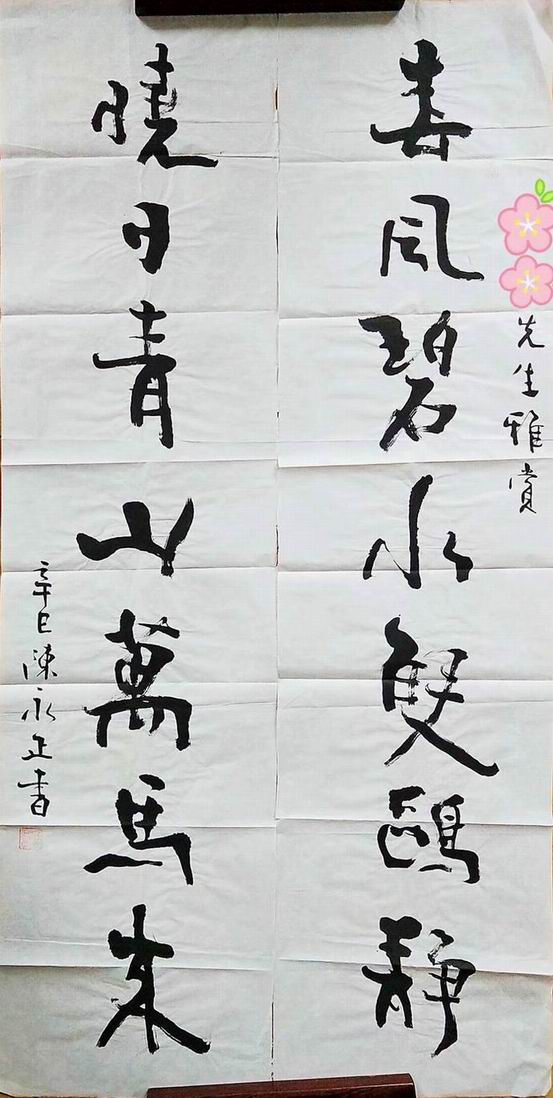 先生雅賞
春風碧水雙鷗靜
曉日青山萬馬來
辛巳陳永正書